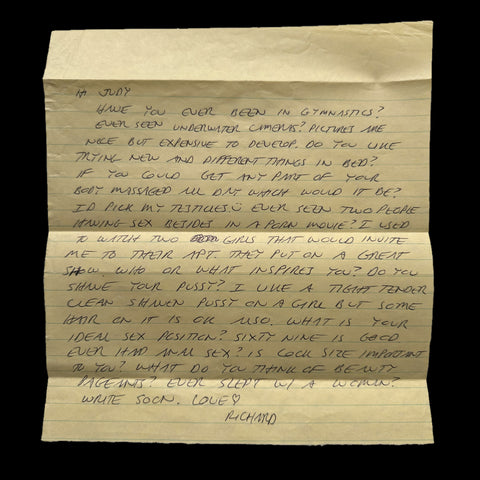 HI JUDY
HAVE YOU EVER BEEN IN GYMNASTICS?
EVER SEEN UNDERWATER CAMERAS? PICTURES ARE
NICE BUT EXPENSIVE TO DEVELOP. DO YOU LIKE
TRYING NEW AND DIFFERENT THINGS IN BED?
IF YOU COULD GET ANY PART OF YOUR
BODY MASSAGED ALL DAY WHICH WOULD IT BE?
I'D PICK MY TESTICLES☺ EVER SEEN TWO PEOPLE
HAVING SEX BESIDES IN A PORN MOVIE? I USED
TO WATCH TWO GIRLS THAT WOULD INVITE
ME TO THEIR APT THEY PUT ON A GREAT
SHOW. WHO OR WHAT INSPIRES YOU? DO YOU
SHAVE YOUR PUSSY? I LIKE A TIGHT TENDER
CLEAN SHAVEN PUSSY ON A GIRL BUT SOME
HAIR ON IT IS OK ALSO. WHAT IS YOUR
IDEAL SEX POSITION? SIXTY NINE IS GOOD
EVER HAD ANAL SEX? IS COCK SIZE IMPORTANT
TO YOU? WHAT DO YOU THINK OF BEAUTY
PAGEANTS? EVER SLEPT W/ A WOMAN?
WRITE SOON. LOVE♡
RICHARD